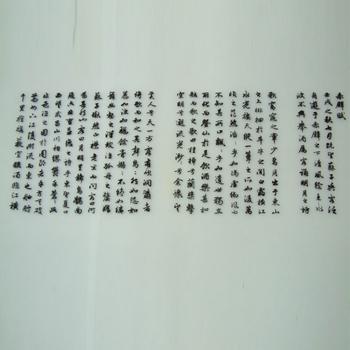 赤壁賦
壬戌之秋七月既望蘇子與客泛
舟遊于赤壁之下清風徐来水
波不興舉酒屬客誦明月之詩
歌窈窕之章少焉月出于東山
之上徘徊於斗牛之間白露橫江
水光接天縱一葦之所如凌萬
頃之茫然浩浩乎如馮虛御風而
不知其所止飄飄乎如遺世獨立
羽化而登仙於是飲酒樂甚扣
舷而歌之歌曰桂棹兮蘭槳擊
空明兮溯流光渺渺兮余懷望
美人兮天一方客有吹洞簫者
倚歌而和之其聲嗚嗚然如怨如
慕如泣如訴餘音裊裊不絕如縷
舞幽壑之潛蛟泣孤舟之嫠婦
蘇子愀然正襟危坐而問客曰何
為其然也客曰月明星稀烏鵲南
飛此非曹孟德之詩乎東望夏口
西望武昌山川相繆鬱乎蒼
蒼此非孟德之困於周郎者乎方其破
荊州下江陵順流而東也舳艫
千里旌旗蔽空釃酒臨江橫